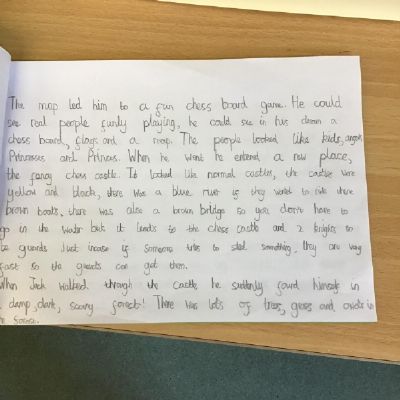 The map led him to a fun chess board game. He could
see real people funly playing, he could see in his dream a
chess board, flags and a map. The people looked like kids, angels
Princesses and Princes. When he went he entered a new place,
the fancy chess castle. It looked like normal castles, the castle were
yellow and black, there was a blue river if they wanted to ride there
brown boats, there was also a brown bridge so you don't have to
go in the water but it leads to the chess castle and 2 knights to
be guards Just incase if someone tries to steal something, they are very
fast so the guards can get them.
When Jack walked through the castle he suddenly found himself in
a damp, dark, scary forest! There was lots of trees, grass and in
forest.